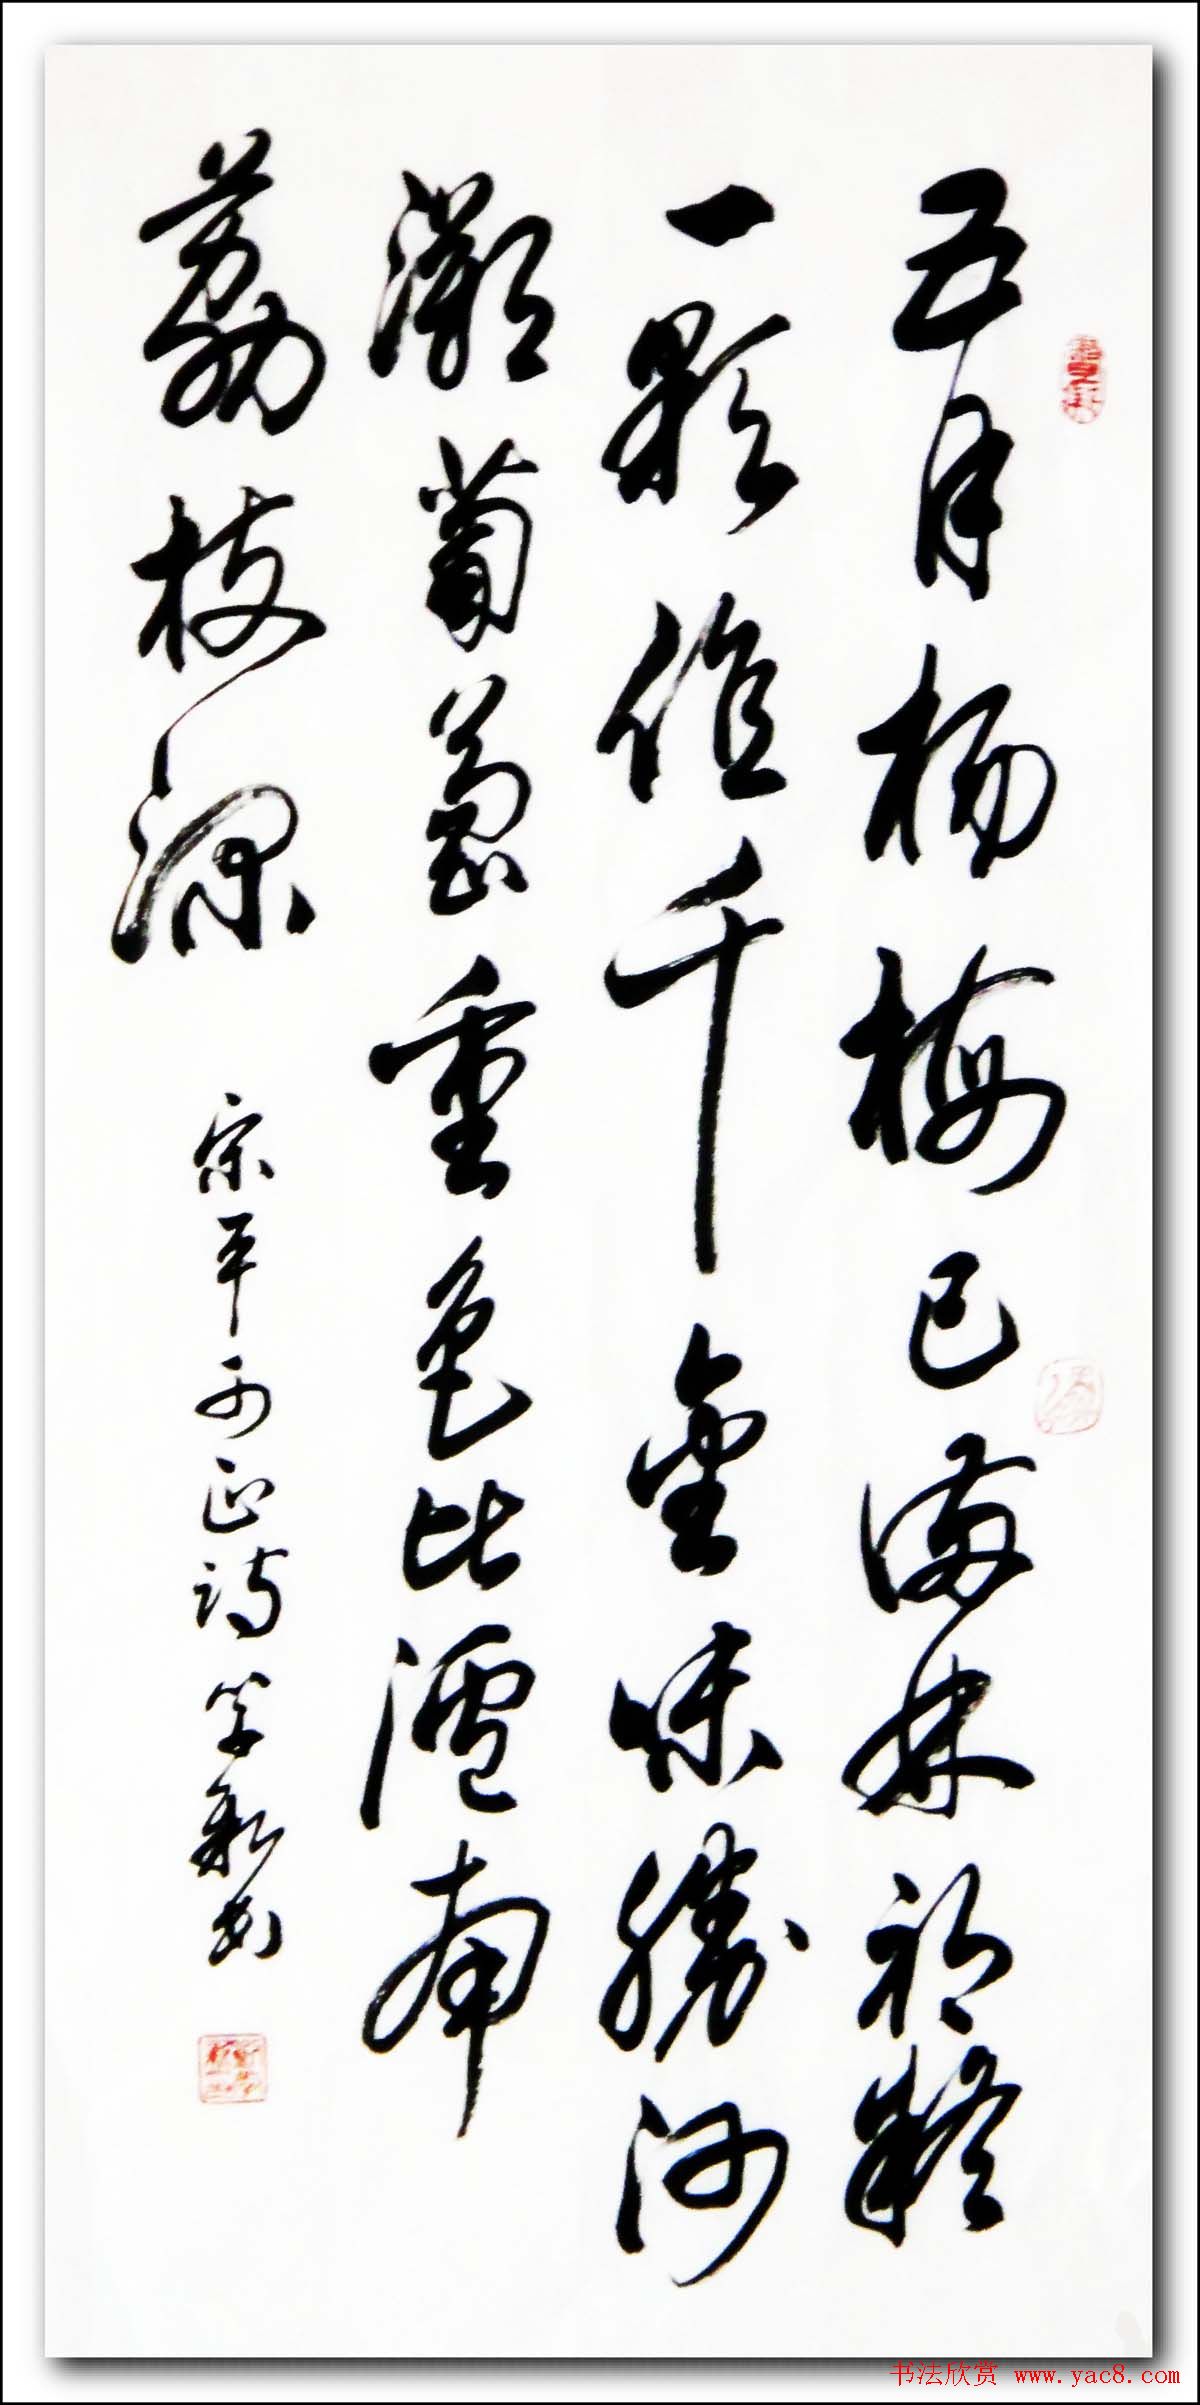 五月杨梅已滿林初疑
一颗值千金味勝河
葡萄重色比瀘南
荔枝深
宋平可正詩
书法欣赏 www.yac8.com